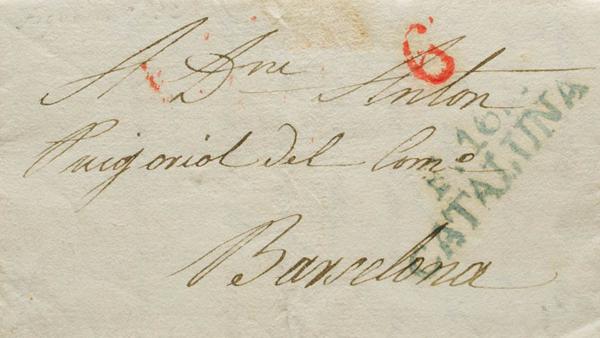 A Dn Anton
Puigoriol del Como
Barcelona
6
CATALUÑA